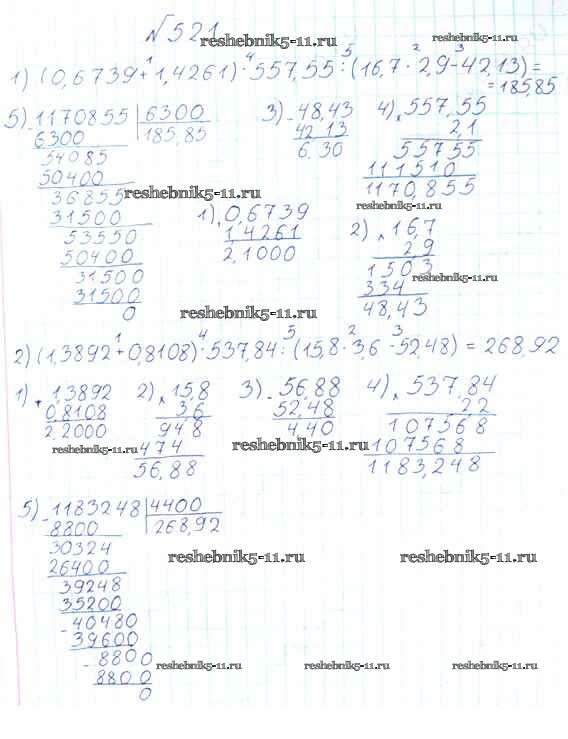 №521
reshebnik5-11.ru
1) (0,6739+1,4261)·557,55:(16,7·2,9-42,13)=
1 4 5 2 3
=185,85
5) -1170855 | 6300
6300 | 185,85
54085
50400
36855
31500
53550
50400
31500
31500
0
3) -48,43
42,13
6,30
4) x 557,55
2,1
55755
111510
1170,855
reshebnik5-11.ru
1) 0,6739
1,4261
2,1000
2) x 16,7
2,9
1503
334
48,43
reshebnik5-11.ru
2) (1,3892+0,8108)·537,84:(15,8·3,6-52,48)=268,92
1 4 5 2 3
1) +1,3892
0,8108
2,2000
2) x 15,8
3,6
948
474
56,88
3) -56,88
52,48
4,40
4) x 537,84
2,2
107568
107568
1183,248
reshebnik5-11.ru
reshebnik5-11.ru
5) -1183248 | 4400
8800 | 268,92
30324
26400
39248
35200
-40480
39600
-8800
8800
0
reshebnik5-11.ru
reshebnik5-11.ru
reshebnik5-11.ru
reshebnik5-11.ru